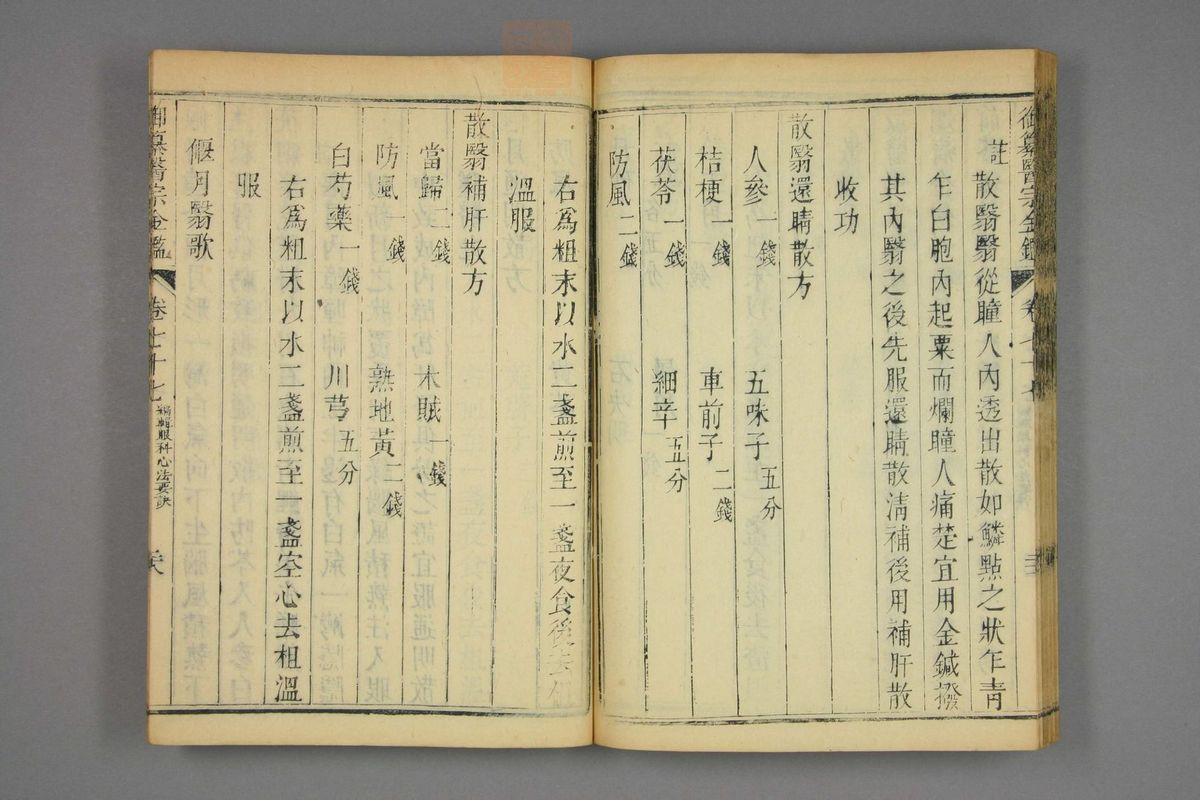 註
散翳翳從瞳人內透出散如鱗點之狀乍青
乍白胞內起粟而爛瞳人痛楚宜用金鍼撥
其內翳之後先服還睛散清補後用補肝散
收功
散翳還睛散方
人參一錢 五味子五分
桔梗一錢 車前子二錢
茯苓一錢 細辛五分
防風二錢
右為粗末以水二盞煎至一盞夜食後去粗
溫服
散翳補肝散方
當歸二錢 木賊一錢
防風一錢 熟地黃二錢
白芍藥一錢 川芎五分
右為粗末以水二盞煎至一盞空心去粗溫
服
偃月翳歌
御纂醫宗金鑑 卷七十七 編輯眼科心法要訣